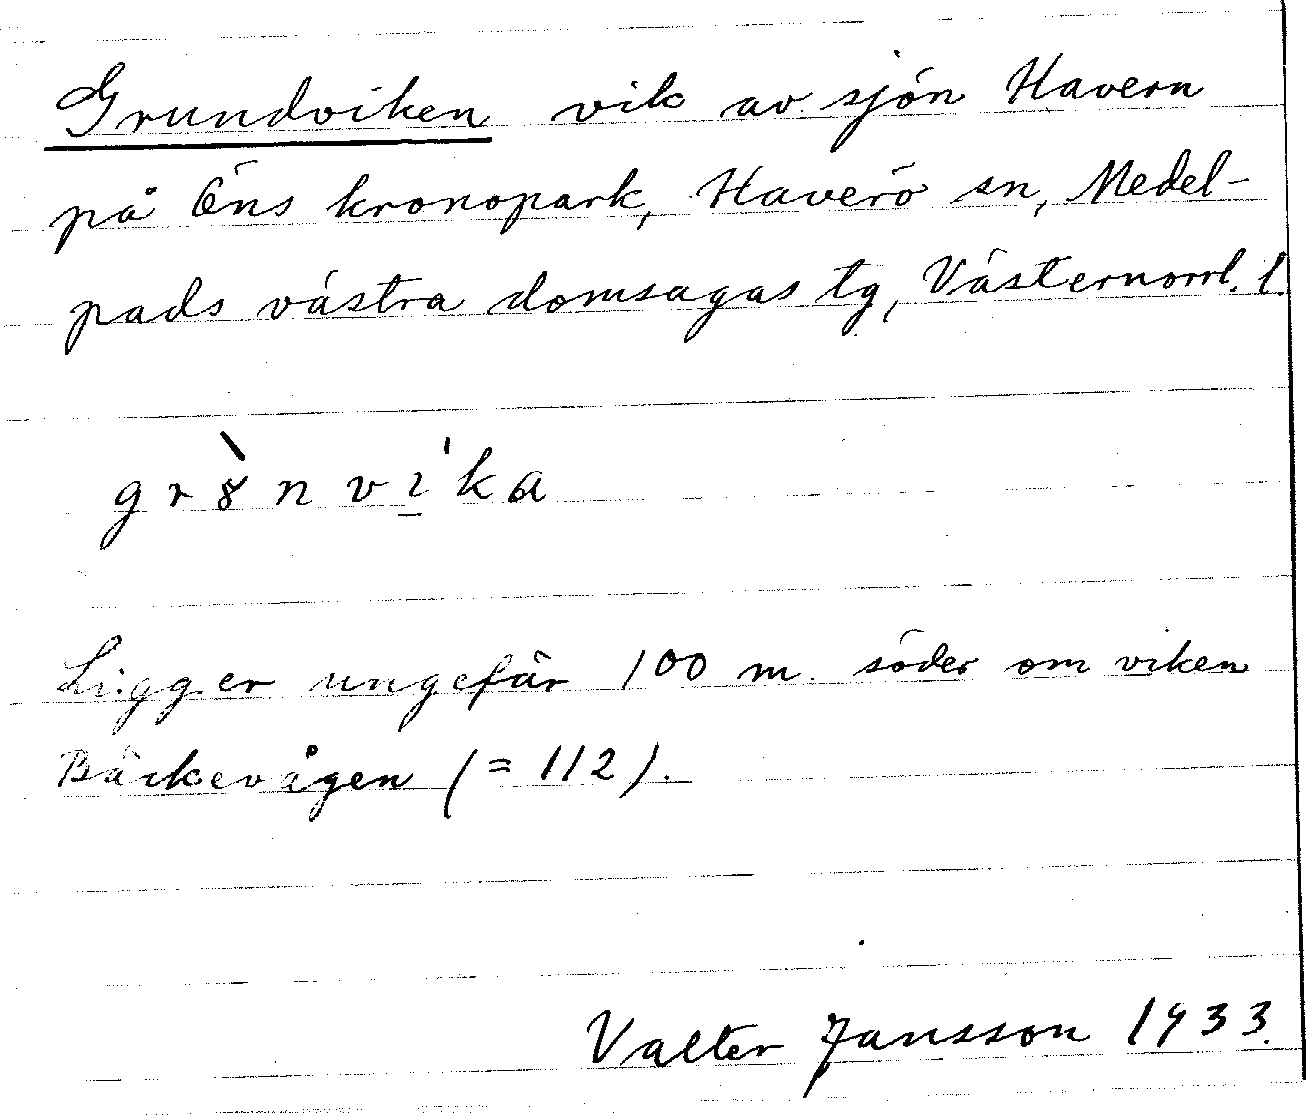 Grundviken vik av sjön Havern
på Öns kronopark, Haverö sn, Medel-
pads västra domsagas tg, Västernorrl. l.
gr8̀nvi̲'ka
Ligger ungefär 100 m. söder om viken
Bäckevågen (= 112).
Valter Jansson 1933.